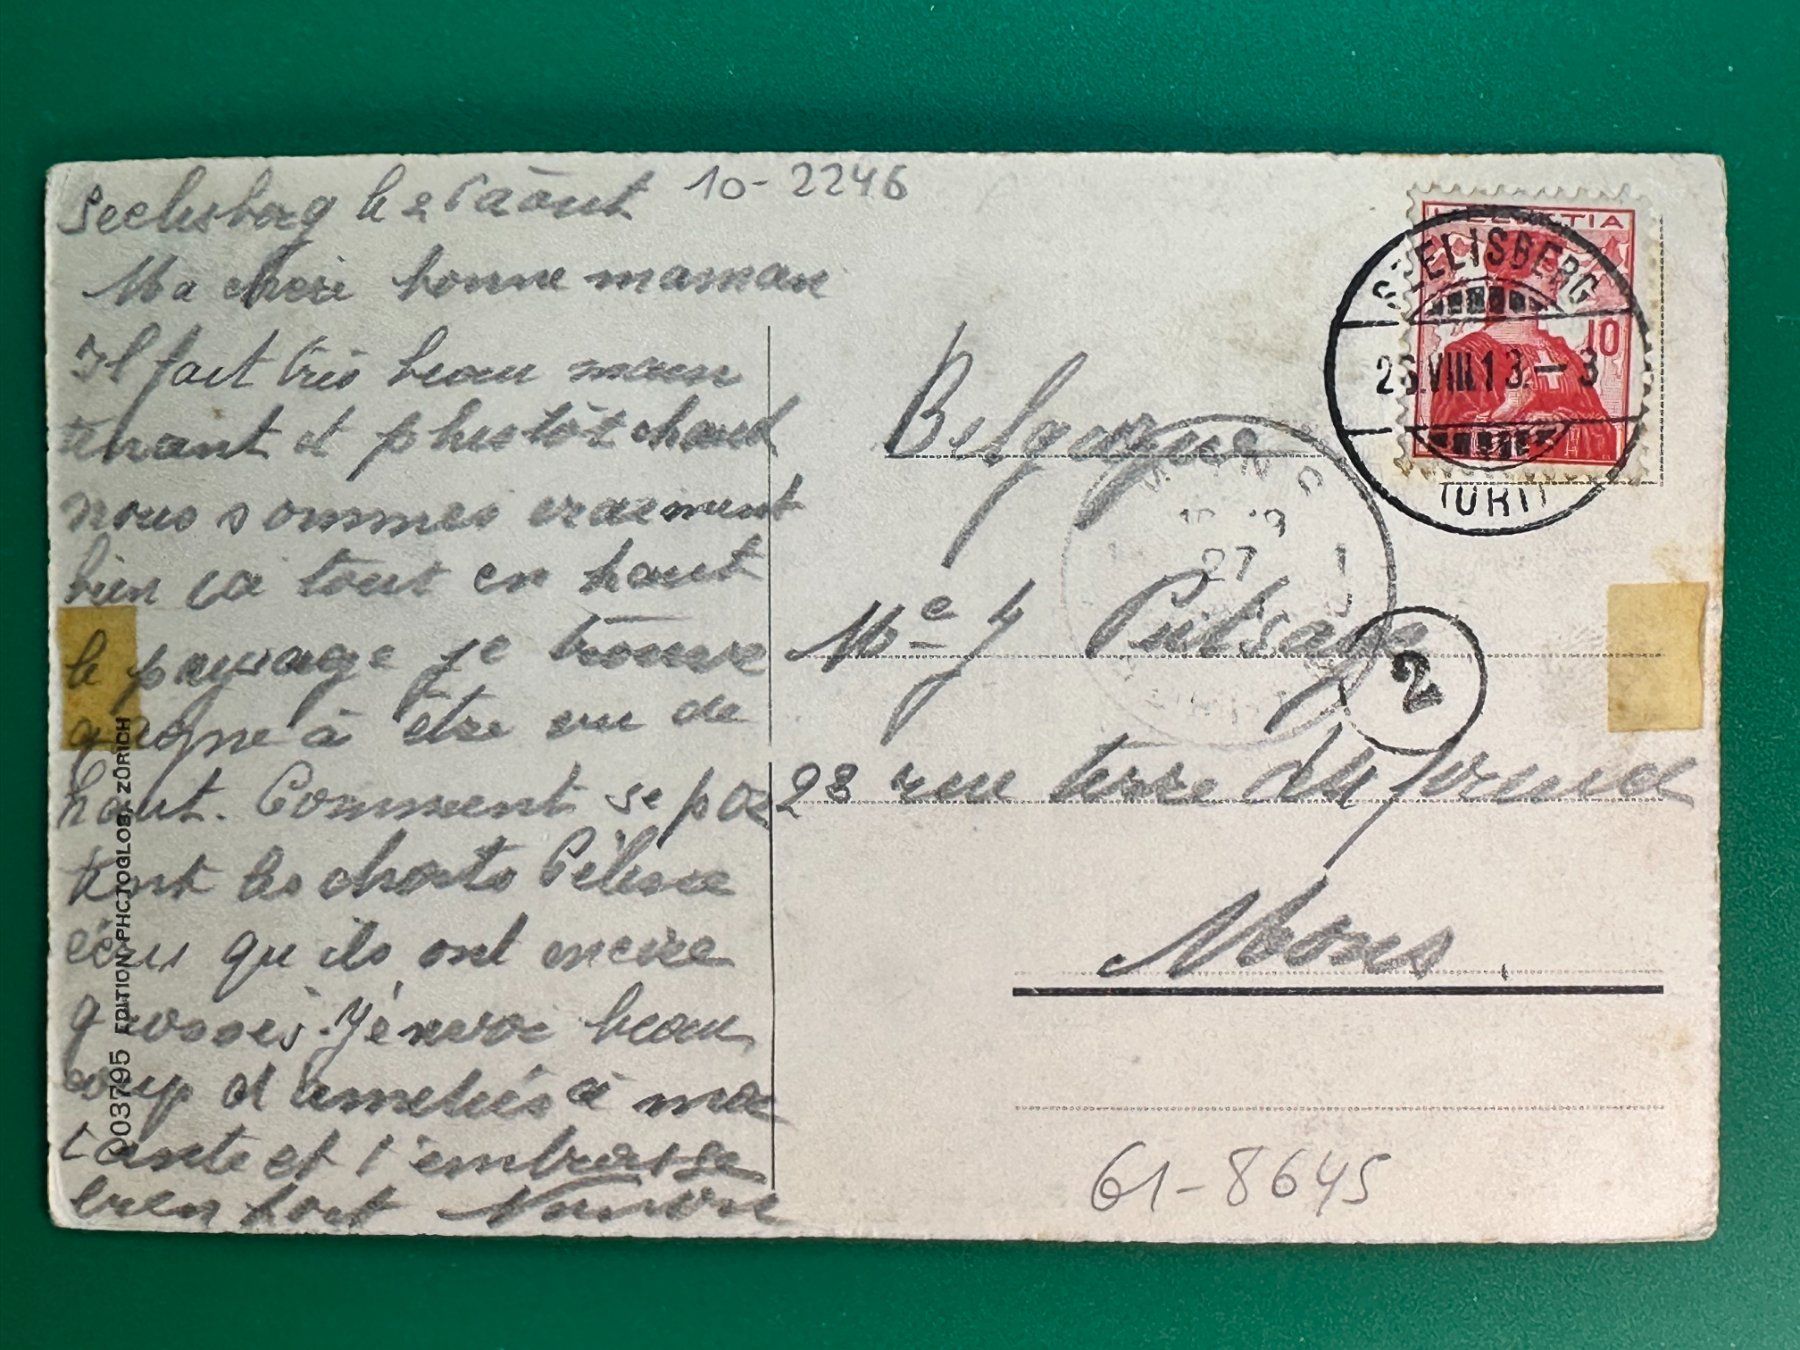 Seelisberg le 26 août
10-2246
Ma chère bonne maman
Il fait très beau main
tenant et plustôt chaud
nous sommes vraement
bien ça tout en haut
le paysage je trouve
gagne à être vu de
haut. Comment se por
tent les chats Célesse
écris qu ils ont encore
J'envoi beau
coup d'ameties à ma
tante et t'embrasse
bien fort
HELVETIA
10
SEELISBERG
26.VIII.13.-3
(URI)
Belgique
MONS
27
Me J
2
28 rue terre du prince
Mons
61-8645
003795 EDITION PHOTOGLOB ZÜRICH